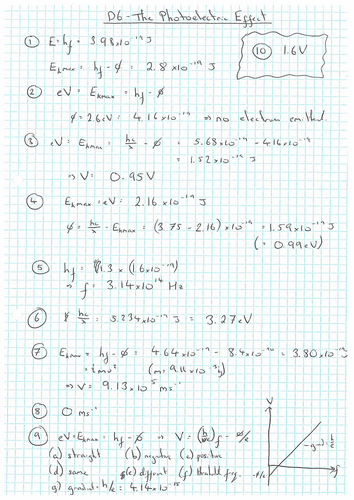 D6 - The Photoelectric Effect
① E = hf = 3.98x10⁻¹⁹ J
Ekmax = hf - ø = 2.8x10⁻¹⁹ J
⑩ 1.6V
② eV = Ekmax = hf - ø
ø = 2.6eV = 4.16x10⁻¹⁹ ⇒ no electrons emitted.
③ eV = Ekmax = hc/λ - ø = 5.68x10⁻¹⁹ - 4.16x10⁻¹⁹
= 1.52x10⁻¹⁹ J
⇒ V = 0.95V
④ Ekmax = eV = 2.16x10⁻¹⁹ J
ø = hc/λ - Ekmax = (3.75 - 2.16)x10⁻¹⁹ = 1.59x10⁻¹⁹ J
(= 0.99eV)
⑤ hf = 1.3x(1.6x10⁻¹⁹)
⇒ f = 3.14x10¹⁴ Hz
⑥ hc/λ = 5.234x10⁻¹⁹ J = 3.27eV
⑦ Ekmax = hf - ø = 4.64x10⁻¹⁹ - 8.4x10⁻²⁰ = 3.80x10⁻¹⁹
= ½mv² (m = 9.11x10⁻³¹)
⇒ V = 9.13x10⁵ ms⁻¹
⑧ 0 ms⁻¹
⑨ eV = Ekmax = hf - ø ⇒ V = (h/e)f - ø/e
(a) straight (b) negative (c) positive
(d) same (e) different (f) threshold freq.
g) gradient = h/e = 4.14x10⁻¹⁵
V
g = h/e
-ø/e
f